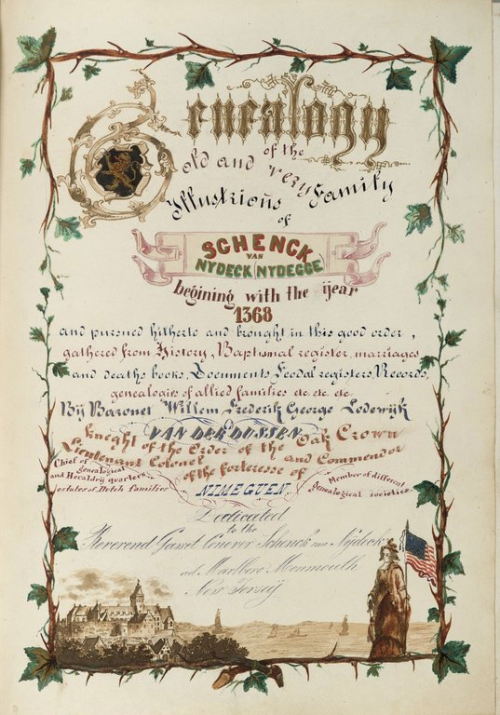 Genealogy
of the
old and very
Illustrious Family
of
SCHENCK
VAN
NYDECK (NYDEGGE)
begining with the ÿear
1368
and pursued hitherto and brought in this good order,
gathered from History, Baptismal register, marriages
and deaths books, Documents, Feodal registers, Records,
genealogies of allied families etc. etc. etc.
Bÿ Baronet Willem Frederik George Lodewijk
VAN DER DUSSEN
Knight of the Order of the Oak Crown
Lieutenant Colonel and Commendor
of the forteresse of
NIMEGUEN.
Chief of genealogical
and Heraldrÿ quarters
of Dutch families
Member of different
genealogical societies
Dedicated
to the
Reverend Garret Conover Schenck van Nÿdeck
Marlboro Monmouth
New Jerseÿ